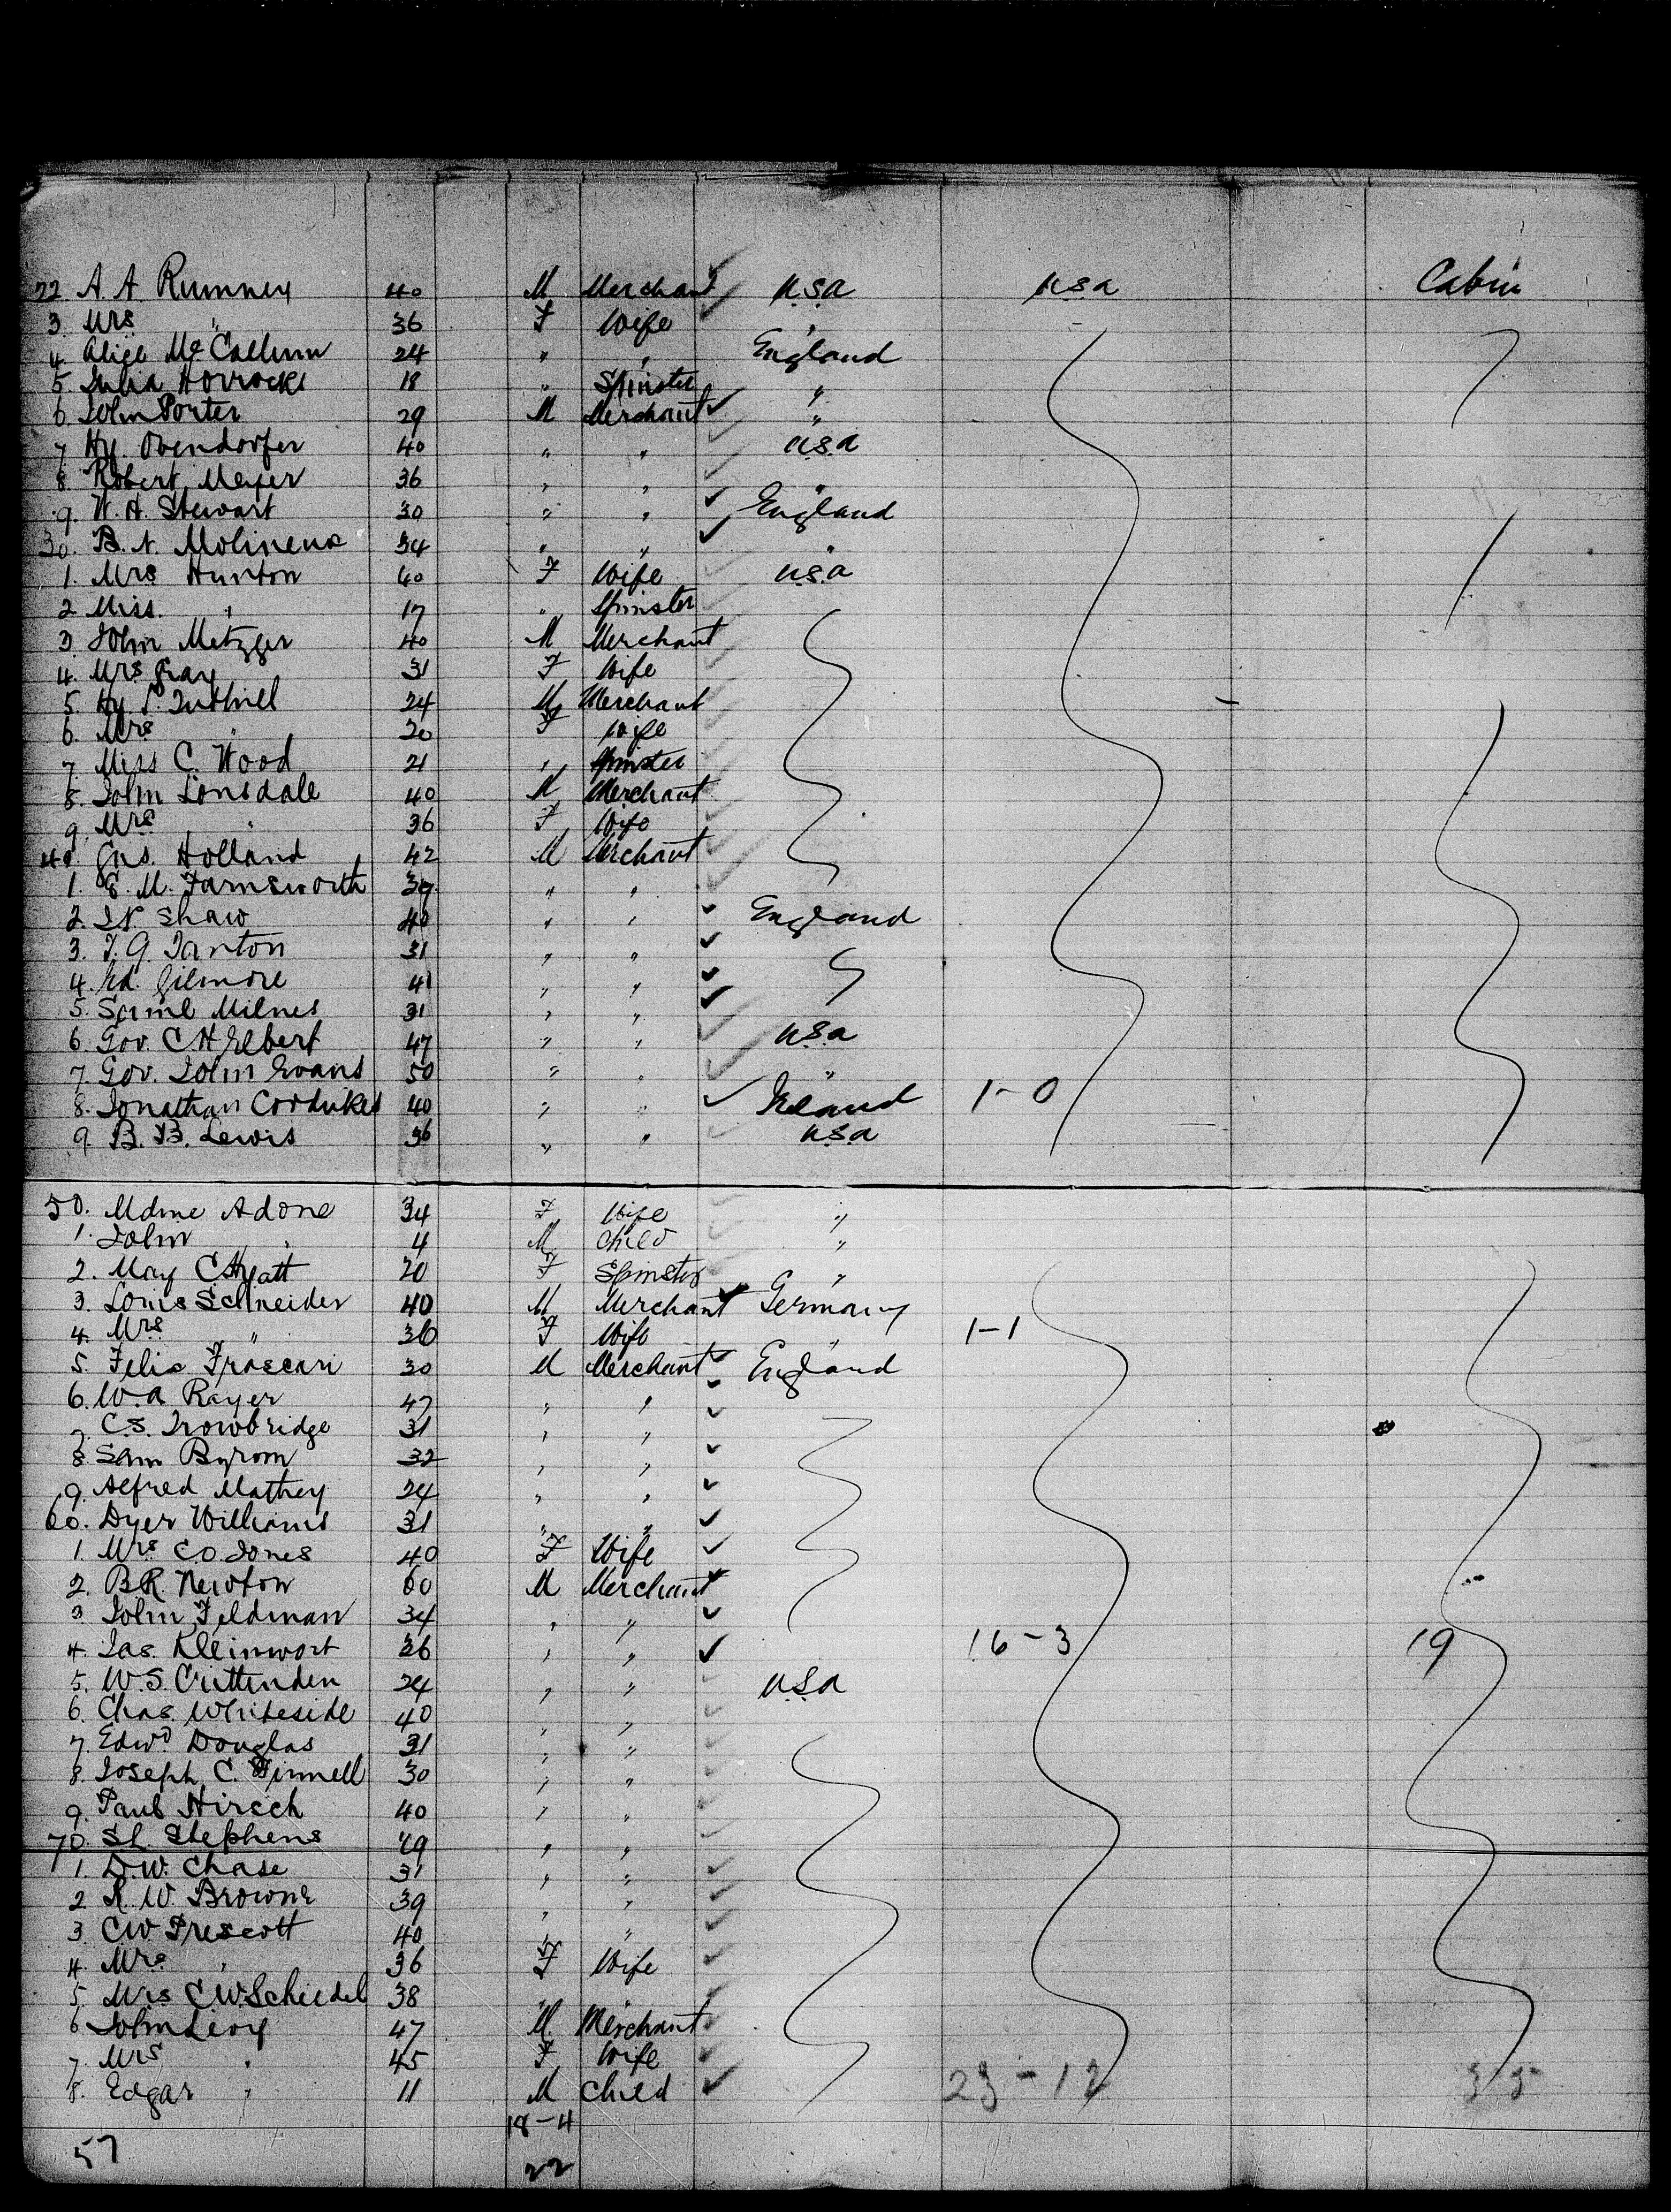 22. A. A. Rumney 40 M Merchant USA USA Cabin
3. Mrs " 36 F Wife "
4. Alice McCallum 24 " " England
5. Julia Horrocks 18 " Spinster "
6. John Porter 29 M Merchant "
7. Hy. Obendorfer 40 " " USA
8. Robert Meyer 36 " " "
9. W. H. Stewart 30 " " England
30. B. N. Molineux 34 " " "
1. Mrs Hunton 40 F Wife USA
2. Miss. " 17 " Spinster
3. John Metzger 40 M Merchant
4. Mrs Gray 31 F Wife
5. Hy. S. Tuthill 24 M Merchant
6. Mrs " 20 F Wife
7. Miss C. Wood 21 " Spinster
8. John Lonsdale 40 M Merchant
9. Mrs " 36 F Wife
40. Jas. Holland 42 M Merchant
1. E. M. Farnsworth 39 " "
2. Shaw 40 " " England
3. T. G. Tanton 31 " "
4. Ed. Gilmore 41 " "
5. Saml Milnes 31 " "
6. Gov. C H Elbert 47 " " USA
7. Gov. John Evans 50 " " "
8. Jonathan Cordukes 40 " " Ireland 1-0
9. B. B. Lewis 36 " " USA
50. Mdme Adone 34 F Wife "
1. John " 4 M Child "
2. May C Hyatt 20 F Spinster "
3. Louis Schneider 40 M Merchant Germany
4. Mrs " 36 F Wife " 1-1
5. Felix Frascari 30 M Merchant England
6. W. A Rayer 47 " "
7. C. S. Trowbridge 31 " "
8. Sam Byrom 32 " "
9. Alfred Mathey 24 " "
60. Dyer Williams 31 " "
1. Mrs C. O. Jones 40 F Wife
2. B R. Newton 60 M Merchant
3. John Feldman 34 " "
4. Jas. Kleinwort 26 " " 16-3 19
5. W. S. Crittenden 24 " " USA
6. Chas. Whiteside 40 " "
7. Edwd Douglas 31 " "
8. Joseph C. Finnell 30 " "
9. Paul Hirsch 40 " "
70. Stephens 49 " "
1. D. W. Chase 31 " "
2. R. W. Browne 39 " "
3. C W Prescott 40 " "
4. Mrs " 36 F Wife
5. Mrs C. W. Schiedel 38 " "
6. John Levy 47 M. Merchant
7. Mrs " 45 F Wife
8. Edgar " 11 M Child 23-12 35
18-4
57 22